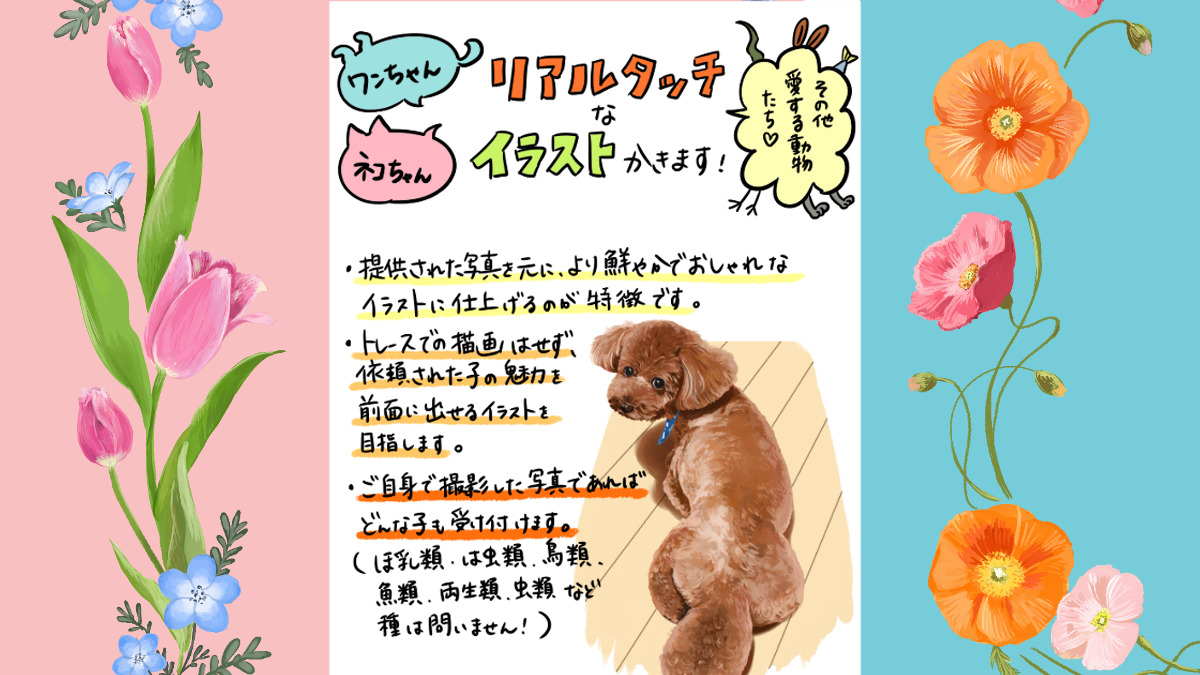 ワンちゃん
ネコちゃん
リアルタッチ
な
イラストかきます！
その他
愛する動物
たち♡
・提供された写真を元に、より鮮やかでおしゃれな
イラストに仕上げるのが特徴です。
・トレースでの描画はせず、
依頼された子の魅力を
前面に出せるイラストを
目指します。
・ご自身で撮影した写真であれば
どんな子も受け付けます。
(ほ乳類．は虫類．鳥類．
魚類．両生類．虫類など
種は問いません！)